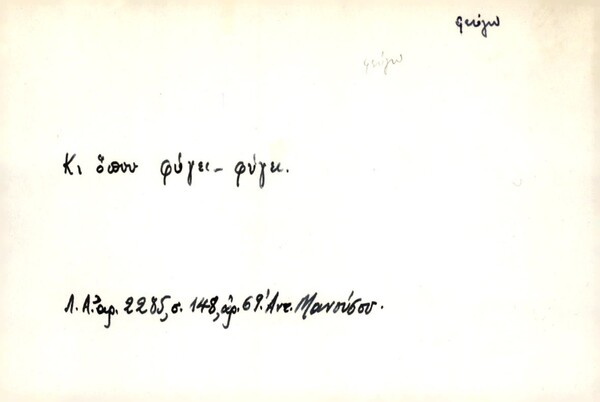 φεύγω
φεύγω
Κι ὅπου φύγει - φύγει.
Λ. Α. ἀρ. 2285, σ. 148, ἀρ. 69. Ἀντ. Μανούσου.